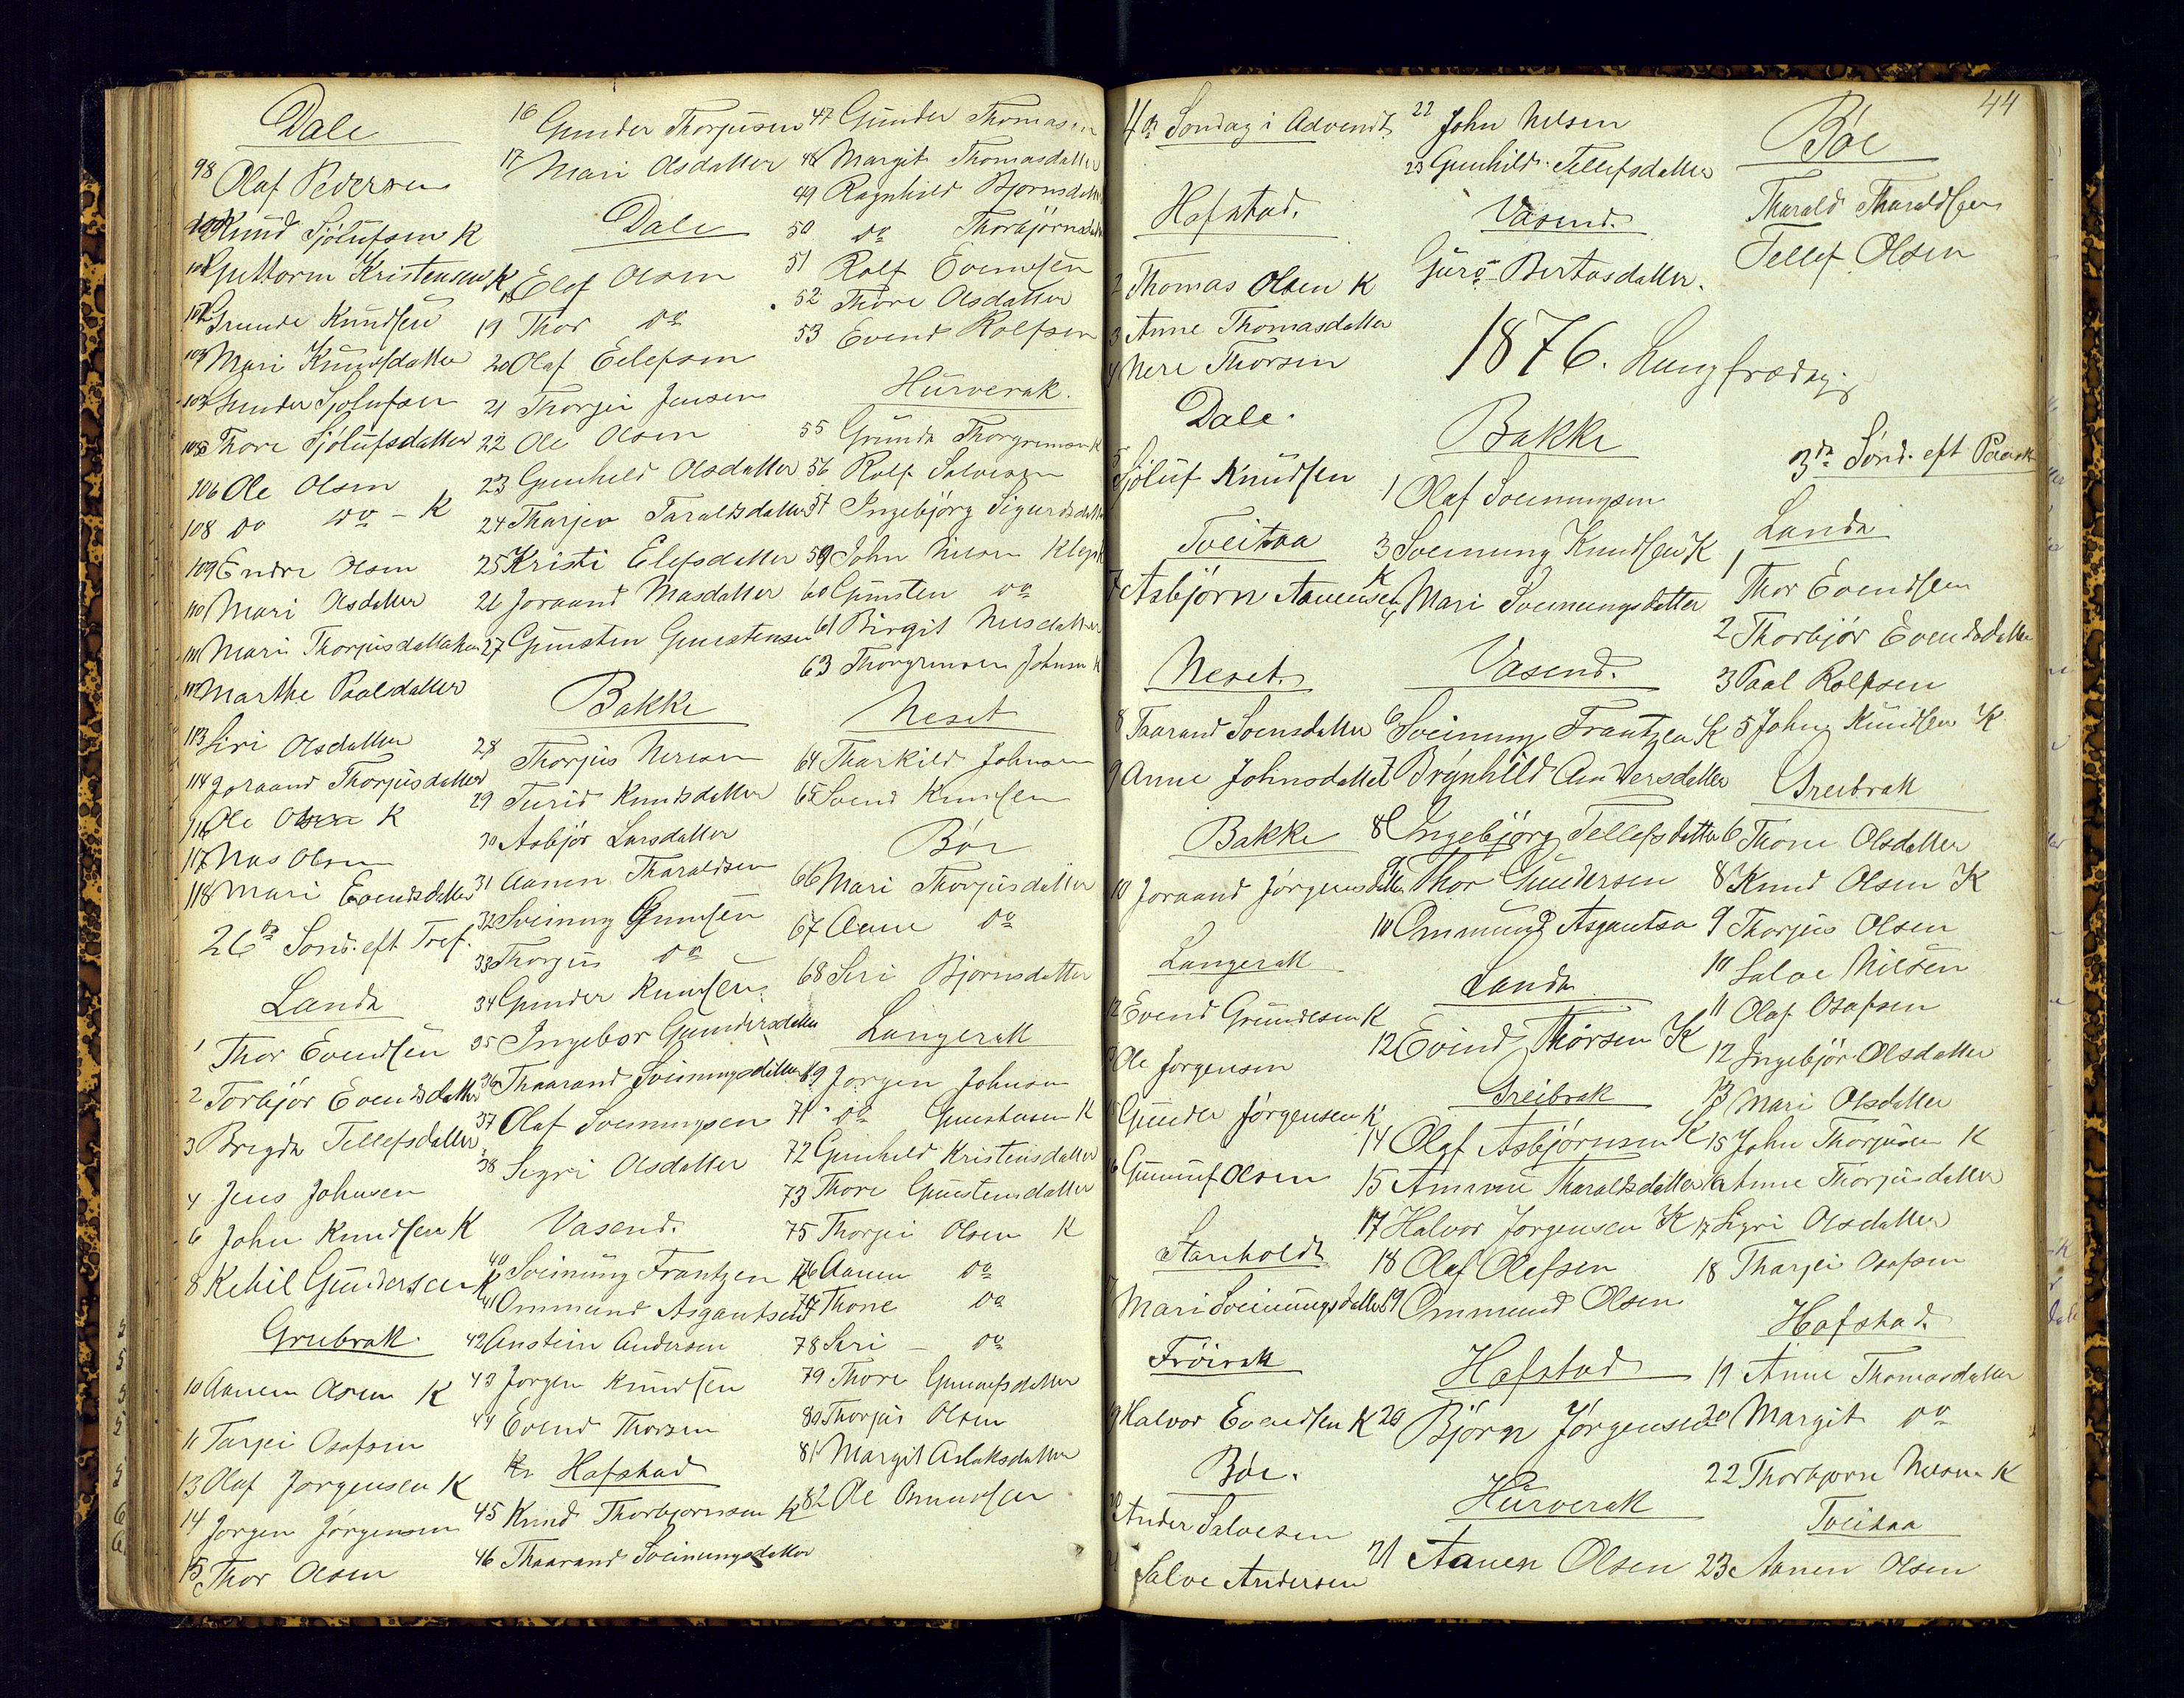 Dale
98 Olaf Pedersen
100 Knud Sjölufsen K
101 Guttorm Kristensen K
102 Grunde Knudsen
103 Mari Knudsdatter
104 Gunder Sjolufsen
105 Thore Sjölufsdatter
106 Ole Olsen
108 do do - K
109 Endre Olsen
110 Mari Olsdatter
111 Mari Thorjusdatter
112 Marthe Paalsdatter
113 Siri Olsdatter
114 Joraand Thorjusdatter
116 Ole Olsen K
117 Nas Olsen
118 Mari Evendsdatter
26de Sønd. eft Tref.
Landa
1 Thor Evendsen
2 Torbjör Evendsdatter
3 Bregda Tellefsdatter
4 Jens Johnsen
6 John Knudsen K
8 Ketil Gundersen K
Greibrak
10 Aanen Olsen K
11 Tarjei Osafsen
13 Olaf Jorgensen K
14 Jorgen Jörgensen
15 Thor Olsen
16 Gunder Thorjusen
17 Mari Olsdatter
Dale
18 Elef Olsen
19 Thor do
20 Olaf Eilefsen
21 Thorjei Jensen
22 Ole Olsen
23 Gunhild Olsdatter
24 Tharjer Taraldsdatter
25 Kristi Elefsdatter
26 Joraand Nasdatter
27 Gunsten Gunstensen
Bakke
28 Thorjus Neresen
29 Turid Knudsdatter
30 Asbjör Larsdatter
31 Aanen Tharaldsen
32 Sveinung Gunufsen
33 Thorjus do
34 Gunder Knudsen
35 Ingebor Gundersdatter
36 Thaarand Sveinungsdatter
37 Olaf Sveinungsen
38 Sigri Olsdatter
Vasend.
40 Sveinung Frantzen K
41 Ommund Asgautsen
42 Anstein Andersen
43 Jorgen Knudsen
44 Evend Thorsen
Hafstad
45 Knud Thorbjornsen K
46 Thaarand Sveinungsdatter
47 Gunder Thomasen
48 Margit Thomasdatter
49 Ragnhild Bjornsdatter
50 do Thorbjörnsdatter
51 Rolf Evendsen
52 Thore Olsdatter
53 Evend Rolfsen
Hurverak.
55 Grunde Thorgrimsen K
56 Rolf Salvesen
57 Ingebjörg Sigurdsdatter
59 John Nilsen Klep K
60 Gunsten do
61 Birgit Nilsdatter
63 Thorgrimsen Johnsen K
Neset
64 Tharkild Johnsen
65 Svend Knudsen
Böe
66 Mari Thorjusdatter
67 Anne do
68 Siri Bjornsdatter
Langerak
69 Jorgen Johnsen
71 do Gunstensen K
72 Gunhild Kristensdatter
73 Thore Gunstensdatter
75 Thorjei Olsen K
76 Aanen do
77 Thone do
78 Siri - do
79 Thore Gunnufsdatter
80 Thorjus Olsen
81 Margit Aslaksdatter
82 Ole Omundsen
4de Sondag i Advendt
Hafstad.
2 Thomas Olsen K
3 Anne Thomasdatter
4 Nere Thorsen
Dale.
5 Sjöluf Knudsen
Tveitaa
7 Asbjörn Aanensen K
Neset.
8 Taarand Svensdatter
9 Anne Johnsdatter
Bakke
10 Joraand Jörgensdatter
Langerak
12 Evend Grundesen K
13 Ole Jorgensen
15 Gunder Jörgensen K
16 Gunuf Olsen
Stanholdt
17 Mari Sveinungsdatter
Fröirak
19 Halvor Evendsen K
Böe.
20 Ander Salvesen
21 Salve Andersen
22 John Nilsen
23 Gunhild Tellefsdatter
Vasend.
Guro Bertasdatter.
1876. Langfredag.
Bakke
1 Olaf Sveinungsen
3 Sveinung Knudsen K
4 Mari Sveinungsdatter
Vasend.
6 Sveinung Frantzen K
7 Brynhild Andersdatter
8 Ingebjörg Tellefsdatter
9 Thor Gundersen
10 Ommund Asgautsa
Landa
12 Evind Thorsen K
Greibrak
14 Olaf Asbjörnsen K
15 Ammu Tharaldsdatter
17 Halvor Jorgensen K
18 Olaf Olefsen
19 Ommund Olsen
Hafstad
20 Björn Jörgensen
Hurverak
21 Aanen Olsen
44
Böe
Tharald Tharaldsen
Tellef Olsen
3de Sønd. eft Paask
Landa
1 Thor Evendsen
2 Thorbjör Evendsdatter
3 Paal Rolfsen
5 John Knudsen K
Greibrak
6 Thone Olsdatter
8 Knud Olsen K
9 Thorjus Olsen
10 Salve Nilsen
11 Olaf Osafsen
12 Ingebjör Olsdatter
13 Mari Olsdatter
15 John Thorjusen K
16 Anne Thorjusdatter
17 Sigri Olsdatter
18 Tharjei Osafsen
Hafstad.
19 Anne Thomasdatter
20 Margit do
22 Thorbjorn Nilsen K
Tveitaa
23 Aanen Olsen